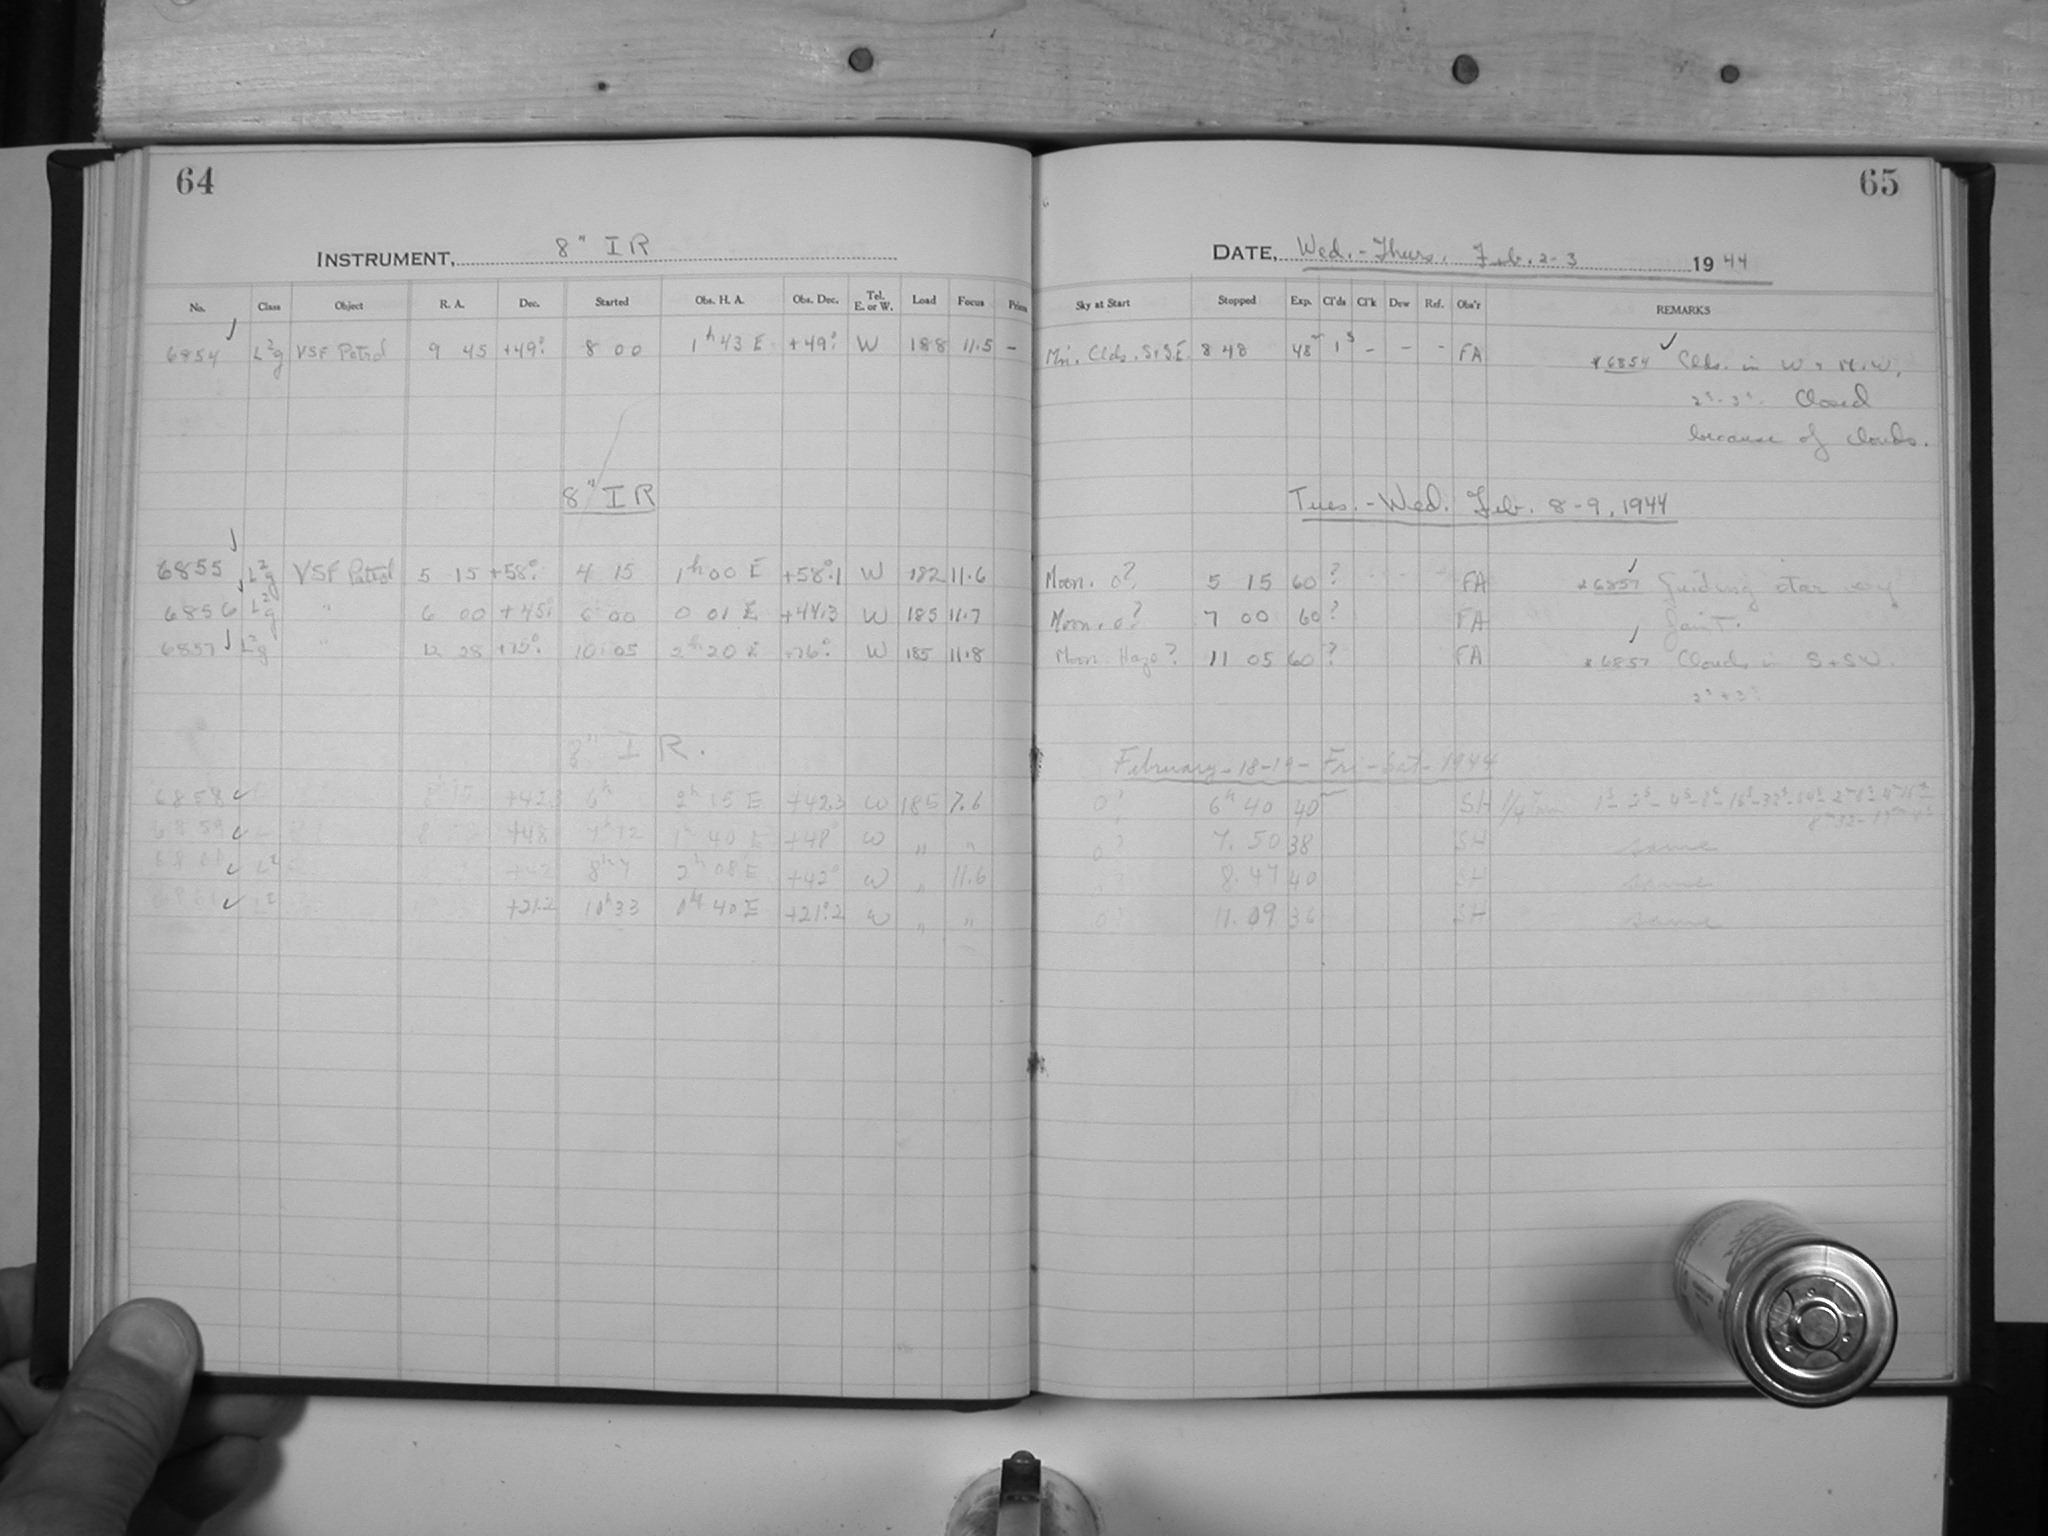 64
65
INSTRUMENT, 8" I R
DATE, Wed. - Thurs. Feb. 2-3 1944
No. Class Object R. A. Dec. Started Obs. H. A. Obs. Dec. Tel. E. or W. Load Focus Prism Sky at Start Stopped Exp. Cl'ds Cl'k Dew Ref. Obs'r REMARKS
6854 L²g VSF Patrol 9 45 +49° 8 00 1h 43 E +49° W 188 11.5 - Mn. Clds. S+S.E. 8 48 48m 1s - - - FA *6854 Clds. in W + N.W.
Closed
because of clouds.
8" I R
Tues. - Wed. Feb. 8-9, 1944
6855 L²g VSF Patrol 5 15 +58° 4 15 1h 00 E +58°.1 W 182 11.6 Moon. 0? 5 15 60 ? FA Guiding star very
6856 L²g " 6 00 +45° 6 00 0 01 E +44.3 W 185 11.7 Moon. 0? 7 00 60 ? FA faint.
6857 L²g " 12 28 +75° 10 05 2h 20 E +76° W 185 11.8 Moon. Haze? 11 05 60 ? FA *6857 Clouds in S + SW.
8" I R.
February - 18-19 - Fri - Sat - 1944
6858 +42.3 6h 2h 15 E +42.3 W 185 7.6 0? 6h 40 40 SH
6859 +48 1h 40 E +48° W " " 0? 7. 50 38 SH same
L² 2h 08 E +42° W " 11.6 8. 47 40 SH same
L² +21.2 10h 33 0h 40 E +21°.2 W " " 0? 11. 09 36 SH same